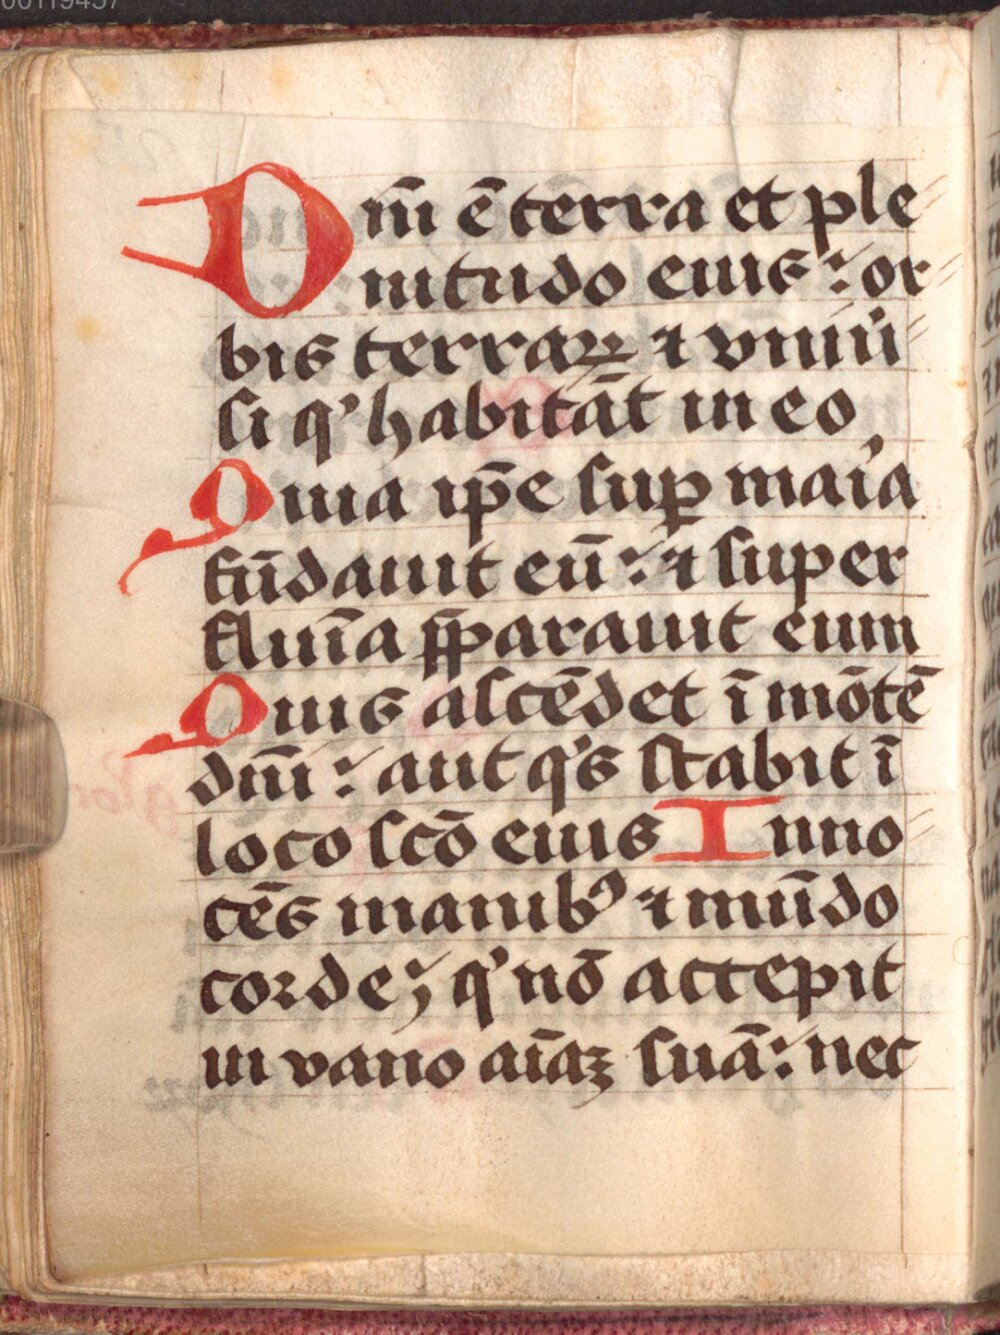 00119457
Dnī ē terra et ple
nitudo eius: or
bis terraꝝ ⁊ vniū
si q' habitāt in eo
Quia ip̄e suꝑ maīa
fūdauit eū: ⁊ super
fluīa p̄parauit eum
Quis ascēdet ī mōtē
dnī: aut q's stabit ī
loco scō eius Inno
cēs manibꝰ ⁊ mūdo
corde; q' nō accepit
in vano aīaꝫ suā: nec